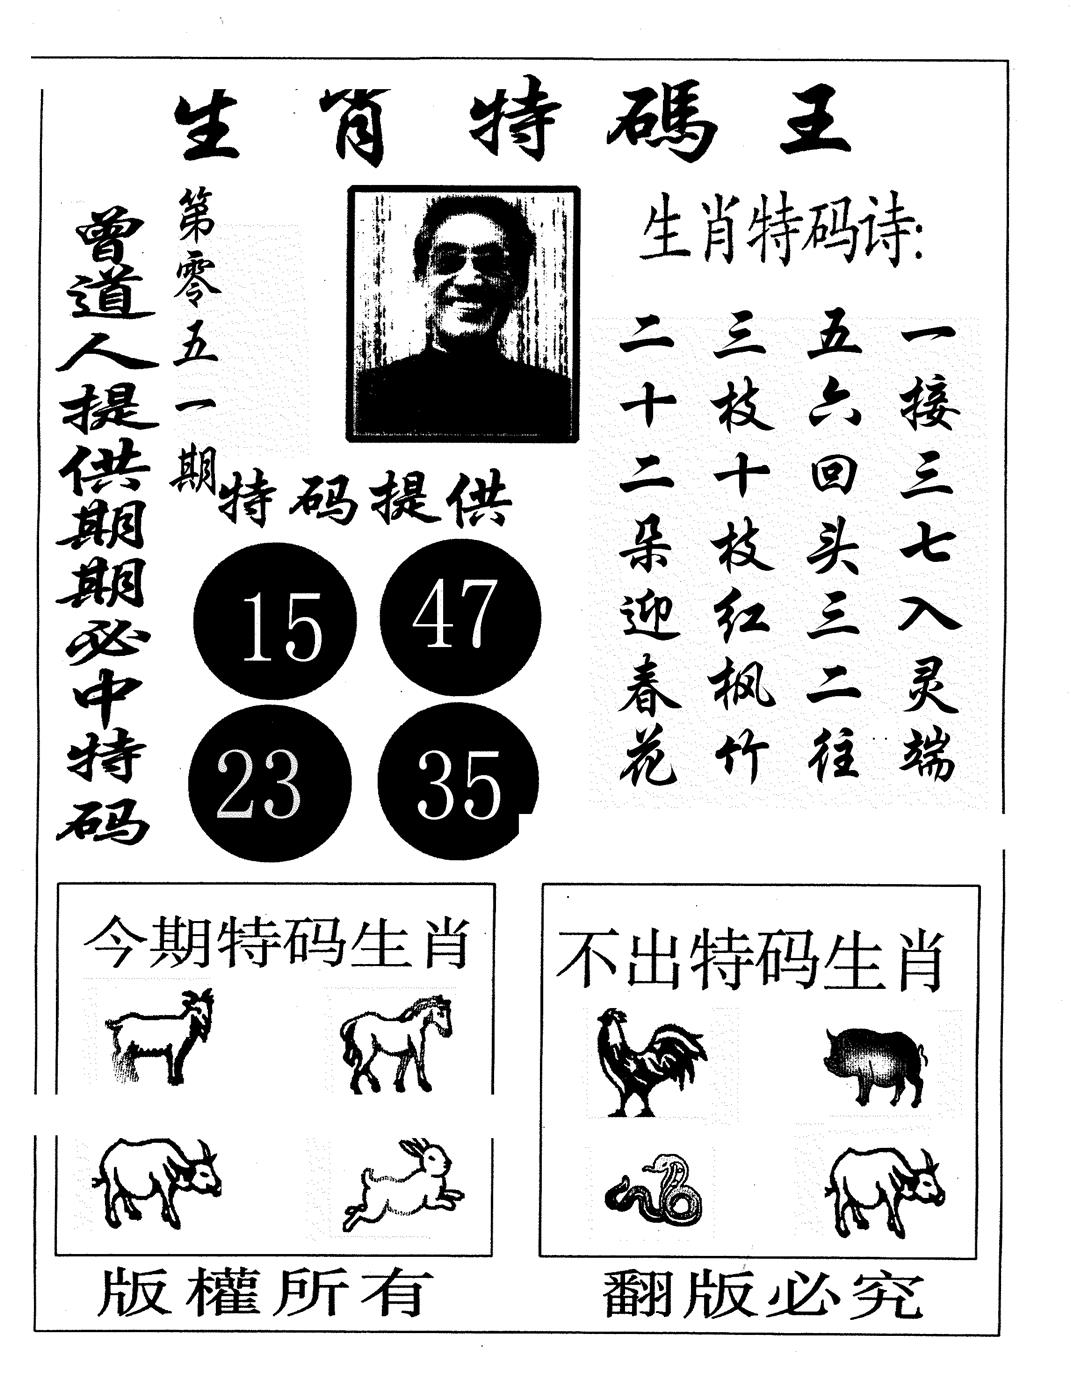 生肖特碼王
曾道人提供期期必中特码
第零五一期
特码提供
15
47
23
35
生肖特码诗:
一接三七入灵端
五六回头三二往
三枝十枝红枫竹
二十二朵迎春花
今期特码生肖
不出特码生肖
版權所有
翻版必究